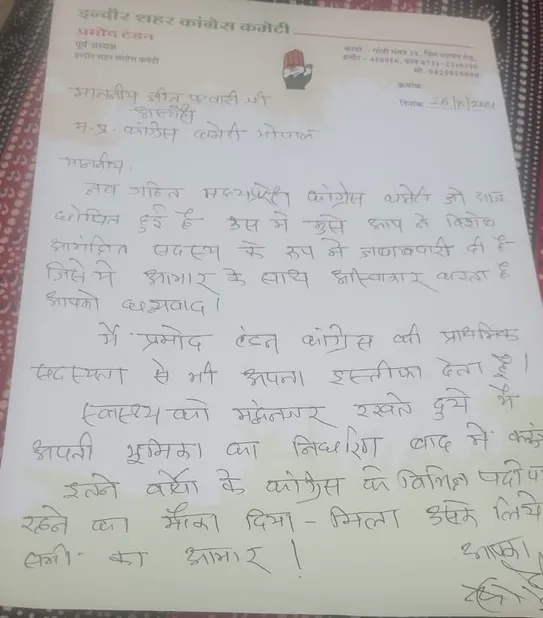 इन्दौर शहर कांग्रेस कमेटी
प्रमोद टंडन
पूर्व अध्यक्ष
इन्दौर शहर कांग्रेस कमेटी
कार्या. : गांधी भवन
इन्दौर -
मो.
क्रमांक
दिनांक
माननीय जीतू पटवारी जी
अध्यक्ष
म.प्र. कांग्रेस कमेटी भोपाल
माननीय,
नव गठित मध्यप्रदेश कांग्रेस कमेटी जो आज
घोषित हुई है उस में मुझे आप ने विशेष
आमंत्रित सदस्य के रूप में जवाबदारी दी है
जिसे मैं आभार के साथ अस्वीकार करता हूँ
आपको धन्यवाद ।
मैं प्रमोद टंडन कांग्रेस की प्राथमिक
सदस्यता से भी अपना इस्तीफा देता हूँ ।
स्वास्थ्य को मद्देनजर रखते हुये मैं
अपनी भूमिका का निर्धारण बाद में
इतने वर्षों के कांग्रेस के विभिन्न पदों प
रहने का मौका दिया - मिला उसके लिये
सभी का आभार !
आपका